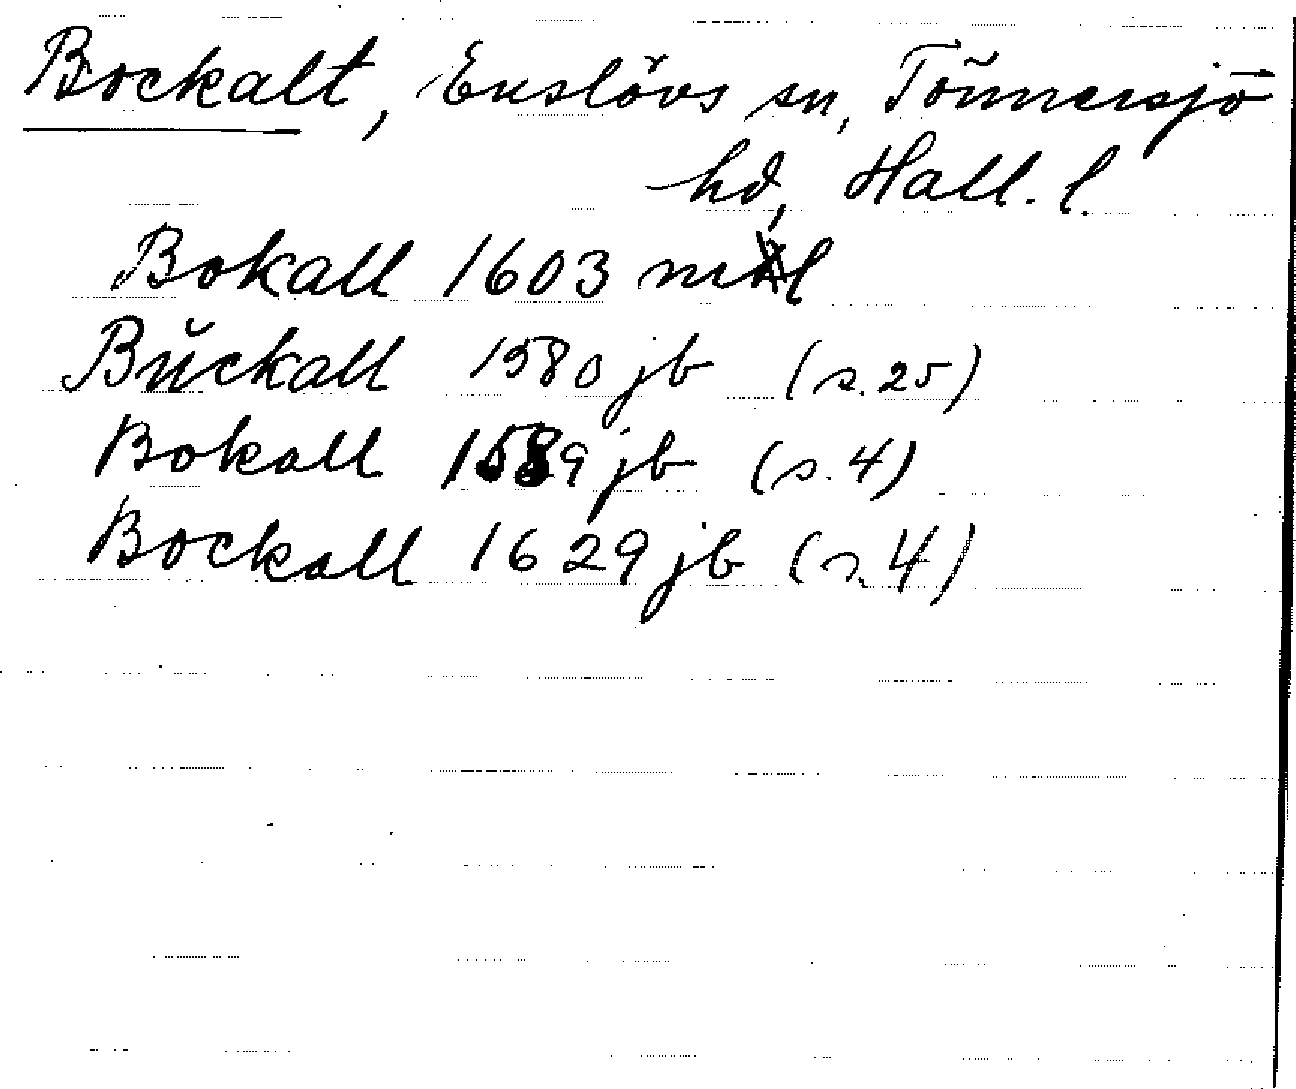 Bockalt, Enslövs sn, Tönnersjö
hd, Hall. l.
Bokall 1603 ml
Bŭckall 1580 jb (s. 25)
Bokall 1589 jb (s. 4)
Bockall 1629 jb (s. 4)